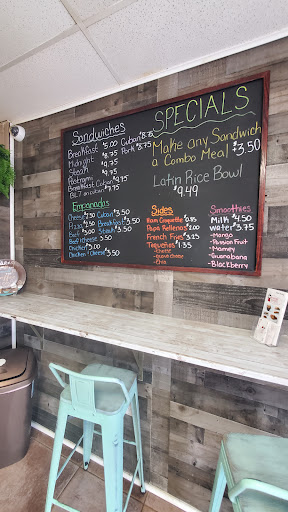 Sandwiches
Breakfast $5.00 Cuban $8.75
Midnight $8.75 Pork $8.75
Steak $9.75
Pastrami $9.75
Breakfast Cuban $9.75
BLT on cuban $7.75
SPECIALS
Make any Sandwich
a Combo Meal $3.50
Latin Rice Bowl
$9.49
Empanadas
Cheese $2.50 Cuban $3.50
Pizza $3.50 Breakfast $3.50
Beef $3.00 Steak $3.50
Beef/cheese $3.50
Chicken $3.00
Chicken & cheese $3.50
Sides
Ham Croquette
Papa Rellena $2.00
French Fries $3.25
Tequeños $1.35
- Cheese
- Guava cheese
Smoothies
Milk $4.50
Water $3.75
- Mango
- Passion Fruit
- Mamey
- Guanabana
- Blackberry